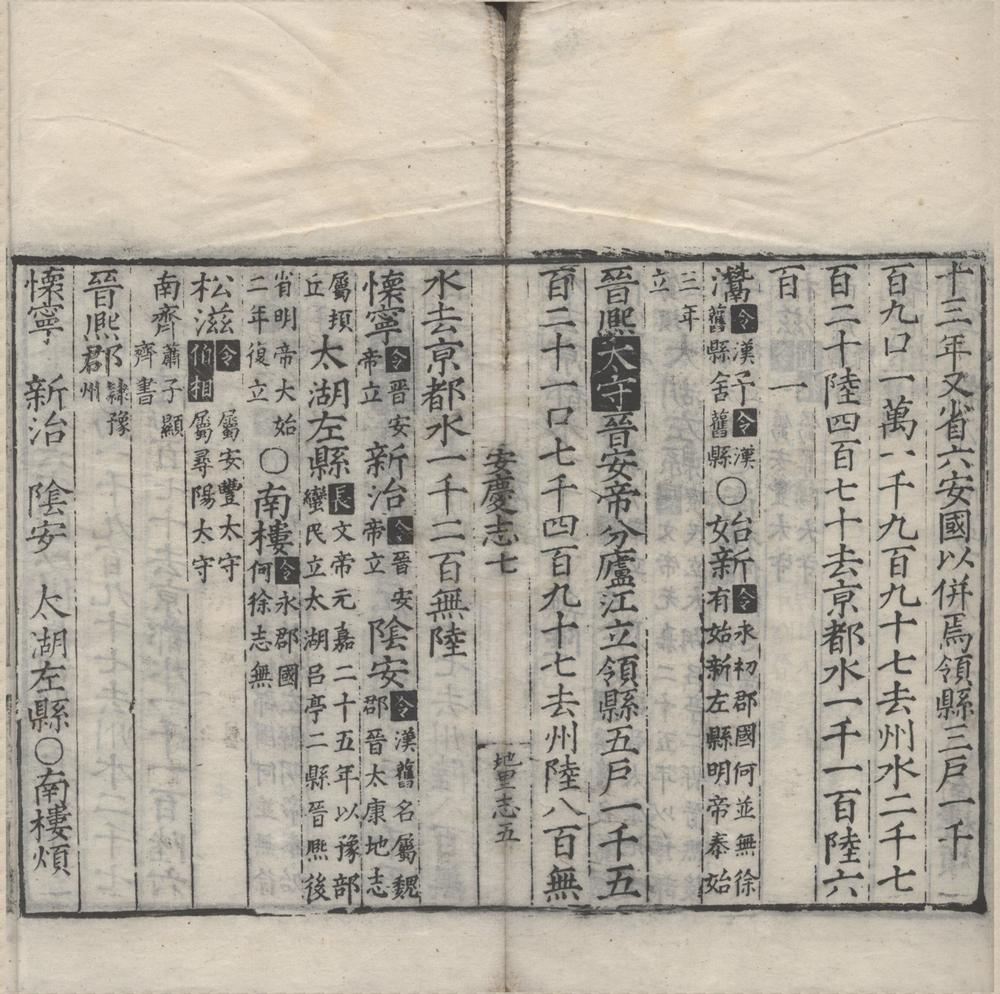 十三年又省六安國以併焉領縣三戶一千
百九口一萬一千九百九十七去州水二千七
百二十陸四百七十去京都水一千一百陸六
百一
灊令漢舊縣舒令漢舊縣〇始新令永初郡國何並無徐有始新左縣明帝泰始
三年立
晉熈太守晉安帝分廬江立領縣五戶一千五
百二十一口七千四百九十七去州陸八百無
安慶志七
地里志五
水去京都水一千二百無陸
懷寧令晉安帝立新治令晉安帝立陰安令漢舊名屬魏郡晉太康地志
屬頓丘太湖左縣長文帝元嘉二十五年以豫部蠻民立太湖呂亭二縣晉熈後
省明帝大始二年復立〇南樓令永郡國何徐志無
松滋令屬安豐太守伯相屬尋陽大守
南齊蕭子顯齊書
晉熈郡隸豫州
懷寧 新治 陰安 太湖左縣〇南樓煩